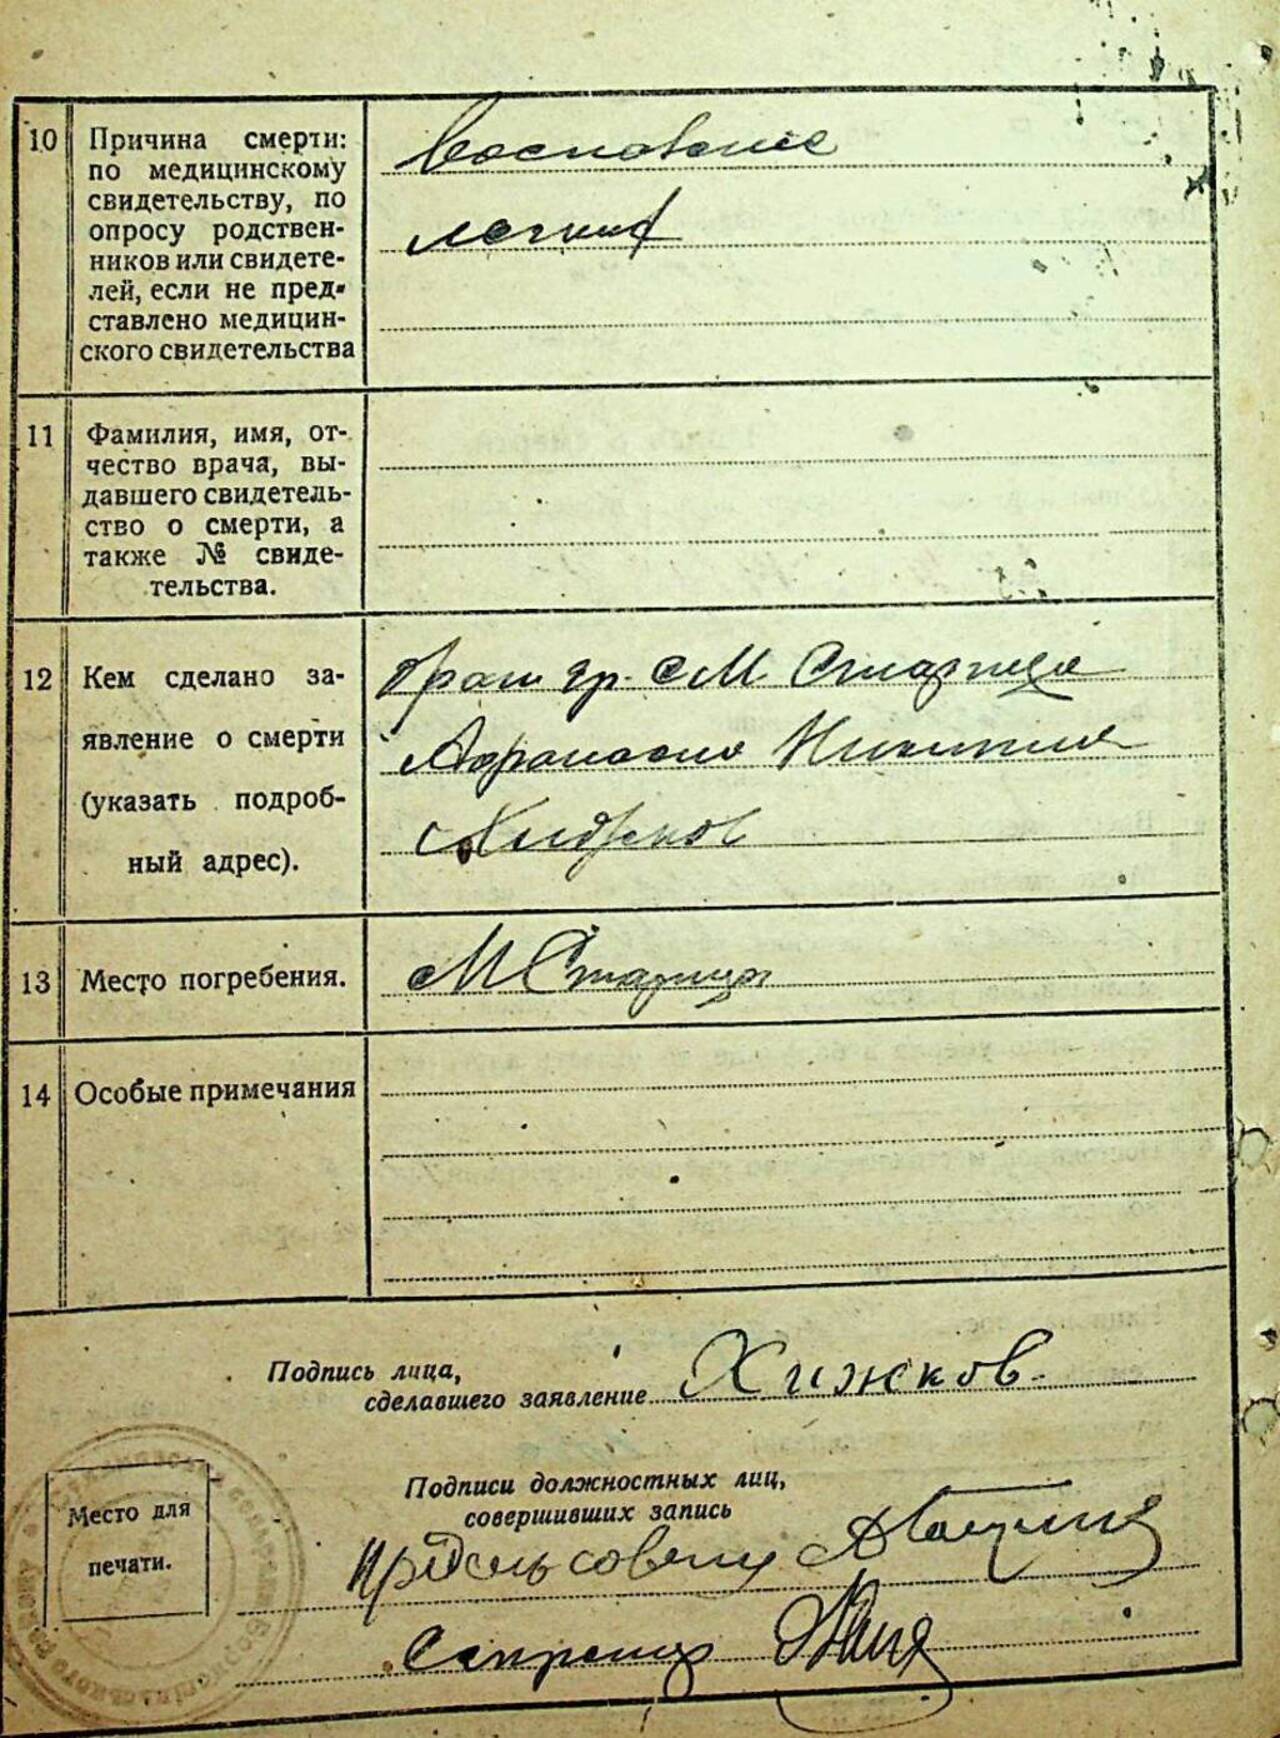 10 Причина смерти:
по медицинскому
свидетельству, по
опросу родствен-
ников или свидете-
лей, если не пред-
ставлено медицин-
ского свидетельства
Воспаление
легких
11 Фамилия, имя, от-
чество врача, вы-
давшего свидетель-
ство о смерти, а
также № свиде-
тельства.
12 Кем сделано за-
явление о смерти
(указать подроб-
ный адрес).
брат гр. с М Старица
Афанасий
Хижков
13 Место погребения.
с М Старица
14 Особые примечания
Подпись лица,
сделавшего заявление Хижков
Подписи должностных лиц,
совершивших запись
Место для
печати.
Пред сельсовета
Секретарь